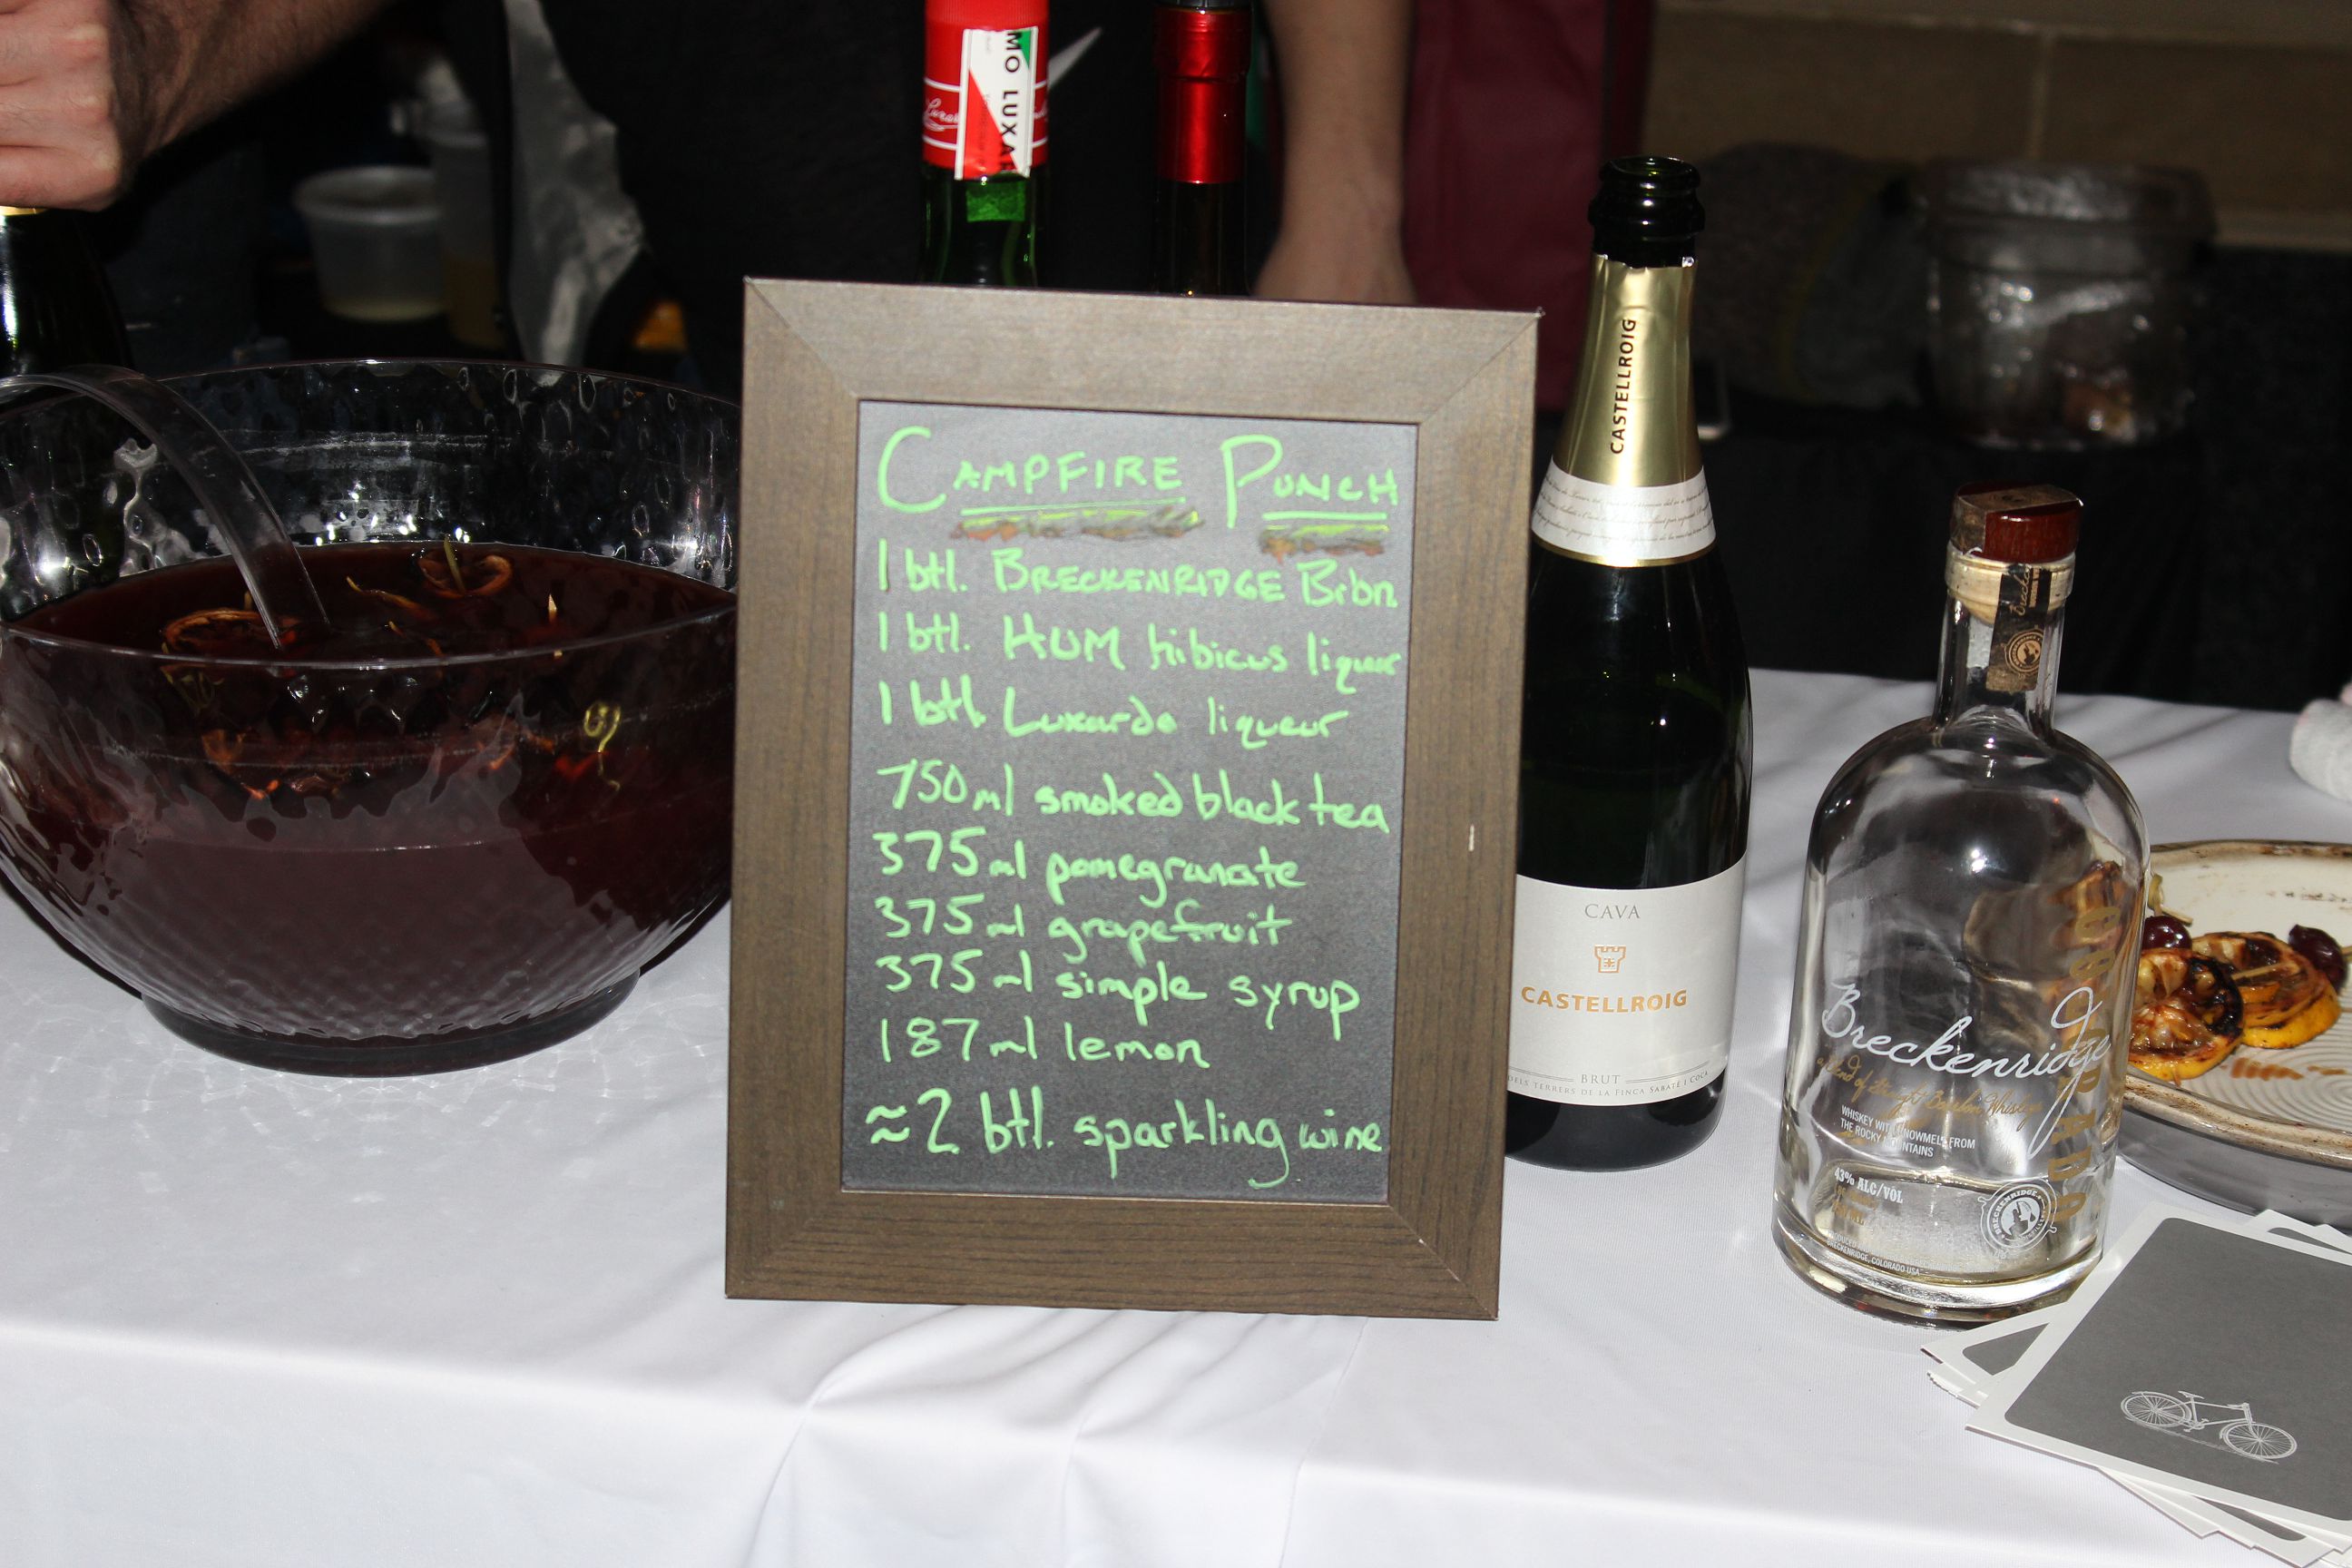 MO LUXAR
CAMPFIRE PUNCH
1 btl. BRECKENRIDGE Brbn
1 btl. HUM hibicus liqueur
1 btl. Luxardo liqueur
750 ml smoked black tea
375 ml pomegranate
375 ml grapefruit
375 ml simple syrup
187 ml lemon
≈2 btl. sparkling wine
CASTELLROIG
CAVA
CASTELLROIG
BRUT
DELS TERRERS DE LA FINCA SABATÉ I COCA
Breckenridge
a blend of straight Bourbon Whiskeys
WHISKEY WITH SNOWMELT FROM
THE ROCKY MOUNTAINS
43% ALC/VOL
BRECKENRIDGE, COLORADO USA
COLORADO